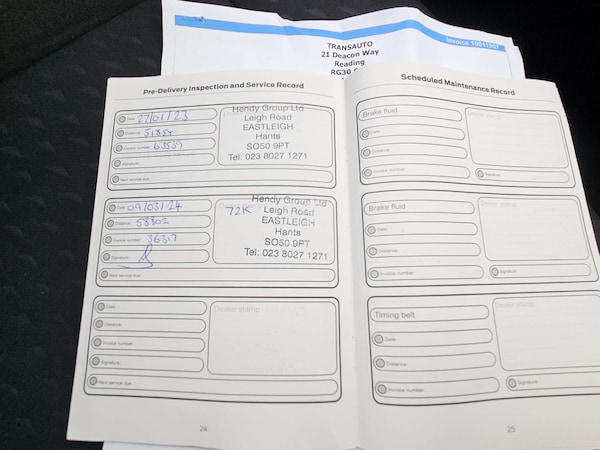 Invoice 10011907
TRANSAUTO
21 Deacon Way
Reading
RG30
Pre-Delivery Inspection and Service Record
Date: 27/01/23
Distance: 51854
Invoice number: 63559
Signature:
Next service due:
Hendy Group Ltd
Leigh Road
EASTLEIGH
Hants
SO50 9PT
Tel: 023 8027 1271
Date: 09/03/24
Distance: 58802
Invoice number: 36317
Signature:
Next service due:
Hendy Group Ltd
72K Leigh Road
EASTLEIGH
Hants
SO50 9PT
Tel: 023 8027 1271
Date:
Distance:
Invoice number:
Signature:
Next service due:
Dealer stamp
24
Scheduled Maintenance Record
Brake fluid
Date:
Distance:
Invoice number:
Signature:
Dealer stamp
Brake fluid
Date:
Distance:
Invoice number:
Signature:
Dealer stamp
Timing belt
Date:
Distance:
Invoice number:
Signature:
Dealer stamp
25